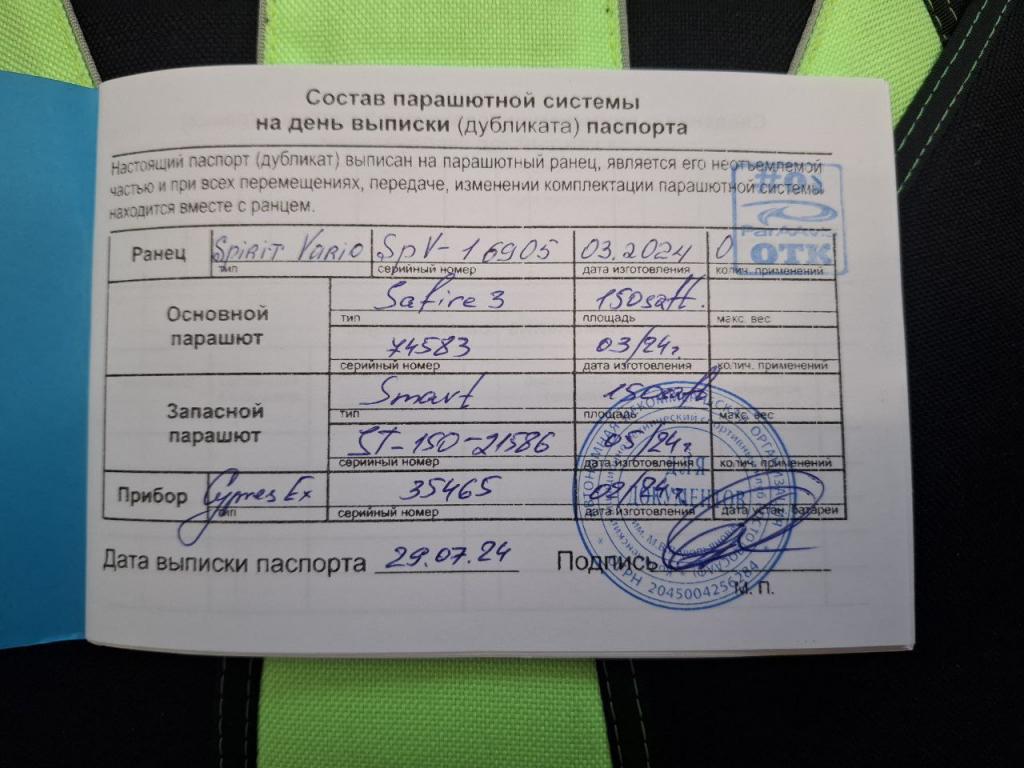 Состав парашютной системы
на день выписки (дубликата) паспорта
Настоящий паспорт (дубликат) выписан на парашютный ранец, является его неотъемлемой
частью и при всех перемещениях, передаче, изменении комплектации парашютной системы
находится вместе с ранцем.
#09
ParAAvis
ОТК
Ранец Spirit Vario SpV-16905 03.2024 0
тип серийный номер дата изготовления колич. применений
Основной
парашют
Safire 3 150sqft.
тип площадь макс. вес
74583 03/24г.
серийный номер дата изготовления колич. применений
Запасной
парашют
Smart 150sqft
тип площадь макс. вес
ST-150-21586 05/24г
серийный номер дата изготовления колич. применений
Прибор Cypres Ex 35465 02/24г.
тип серийный номер дата изготовления дата устан. батареи
Дата выписки паспорта 29.07.24 Подпись
М. П.
АВТОНОМНАЯ НЕКОММЕРЧЕСКАЯ ОРГАНИЗАЦИЯ
ДЛЯ
ДОКУМЕНТОВ
ОГРН 2045004256284